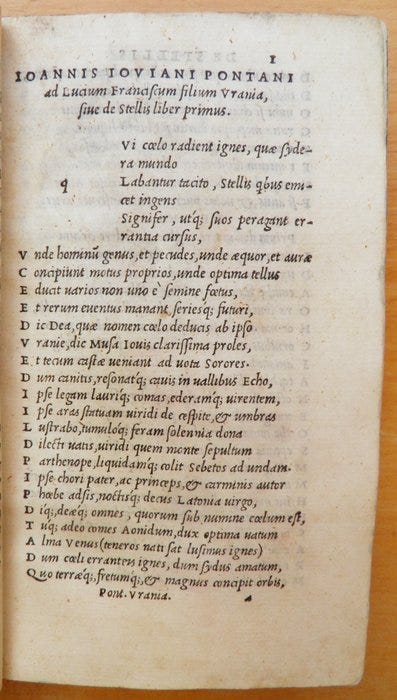 1
IOANNIS IOVIANI PONTANI
ad Lucium Franciscum filium Vrania,
siue de Stellis liber primus.
Vi cœlo radient ignes, quæ syde-
ra mundo
q Labantur tacito, Stellis qbus emi-
cet ingens
Signifer, utq; suos peragant er-
rantia cursus,
Vnde hominũ genus, et pecudes, unde æquor, et auræ
Concipiunt motus proprios, unde optima tellus
Educit varios non uno è semine fœtus,
Et rerum euentus manant seriesq; futuri,
Dic Dea, quæ nomen cœlo deducis ab ipso
Vranie, dic Musa Iouis clarissima proles,
Et tecum castæ veniant ad uota Sorores.
Dum canitis, resonatq; cauis in uallibus Echo,
Ipse legam lauriq; comas, ederamq; uirentem,
Ipse aras statuam uiridi de cespite, & umbras
Lustrabo, tumuloq; feram solennia dona
Dilecti uatis, uiridi quem mente sepultum
Parthenope, liquidamq; colit Sebetos ad undam.
Ipse chori pater, ac princeps, & carminis autor
Phœbe adsis, noctisq; decus Latonia uirgo,
Diq; deæq; omnes, quorum sub numine cœlum est,
Tuq; adeo comes Aonidum, dux optima uatum
Alma Venus (teneros nati sat lusimus ignes)
Dum cœli errantes ignes, dum sydus amatum,
Quo terræq;, fretumq;, & magnus concipit orbis,
Pont. Vrania.